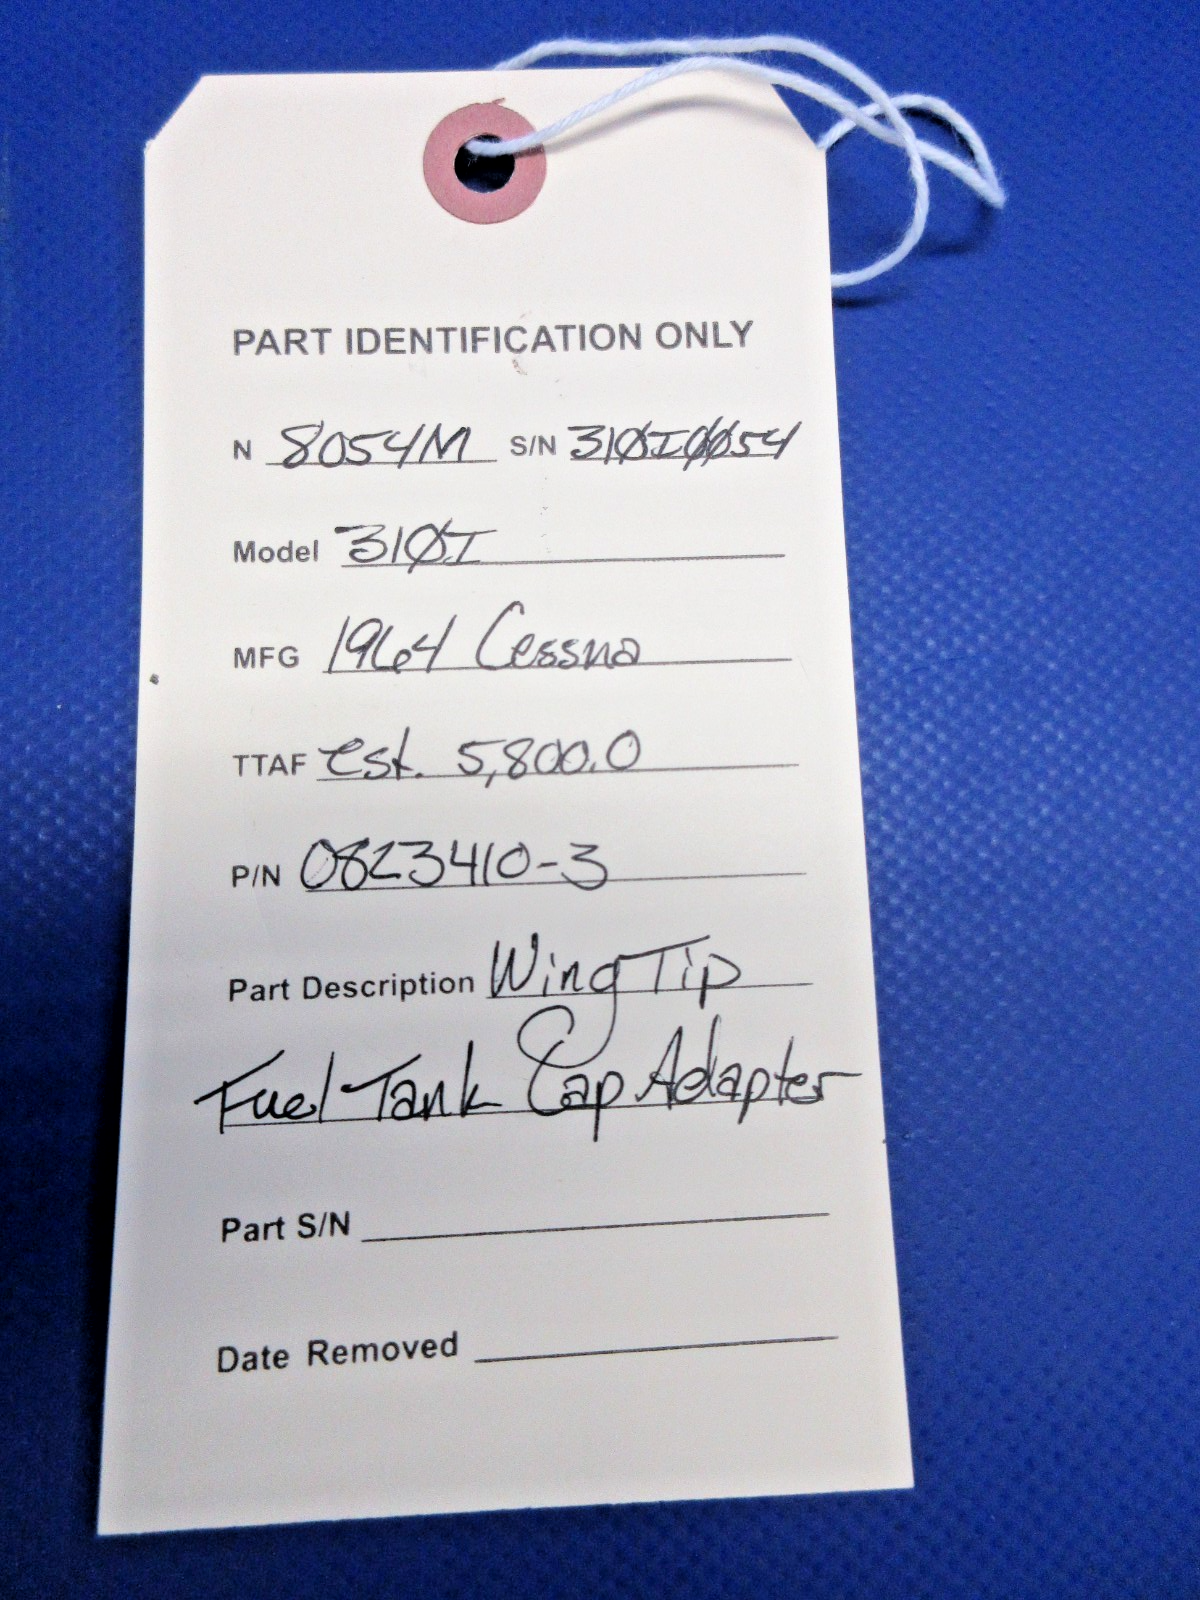 PART IDENTIFICATION ONLY
N 8054M S/N 310I0054
Model 310I
MFG 1964 Cessna
TTAF est. 5,800.0
P/N 0823410-3
Part Description Wing Tip
Fuel Tank Cap Adapter
Part S/N
Date Removed